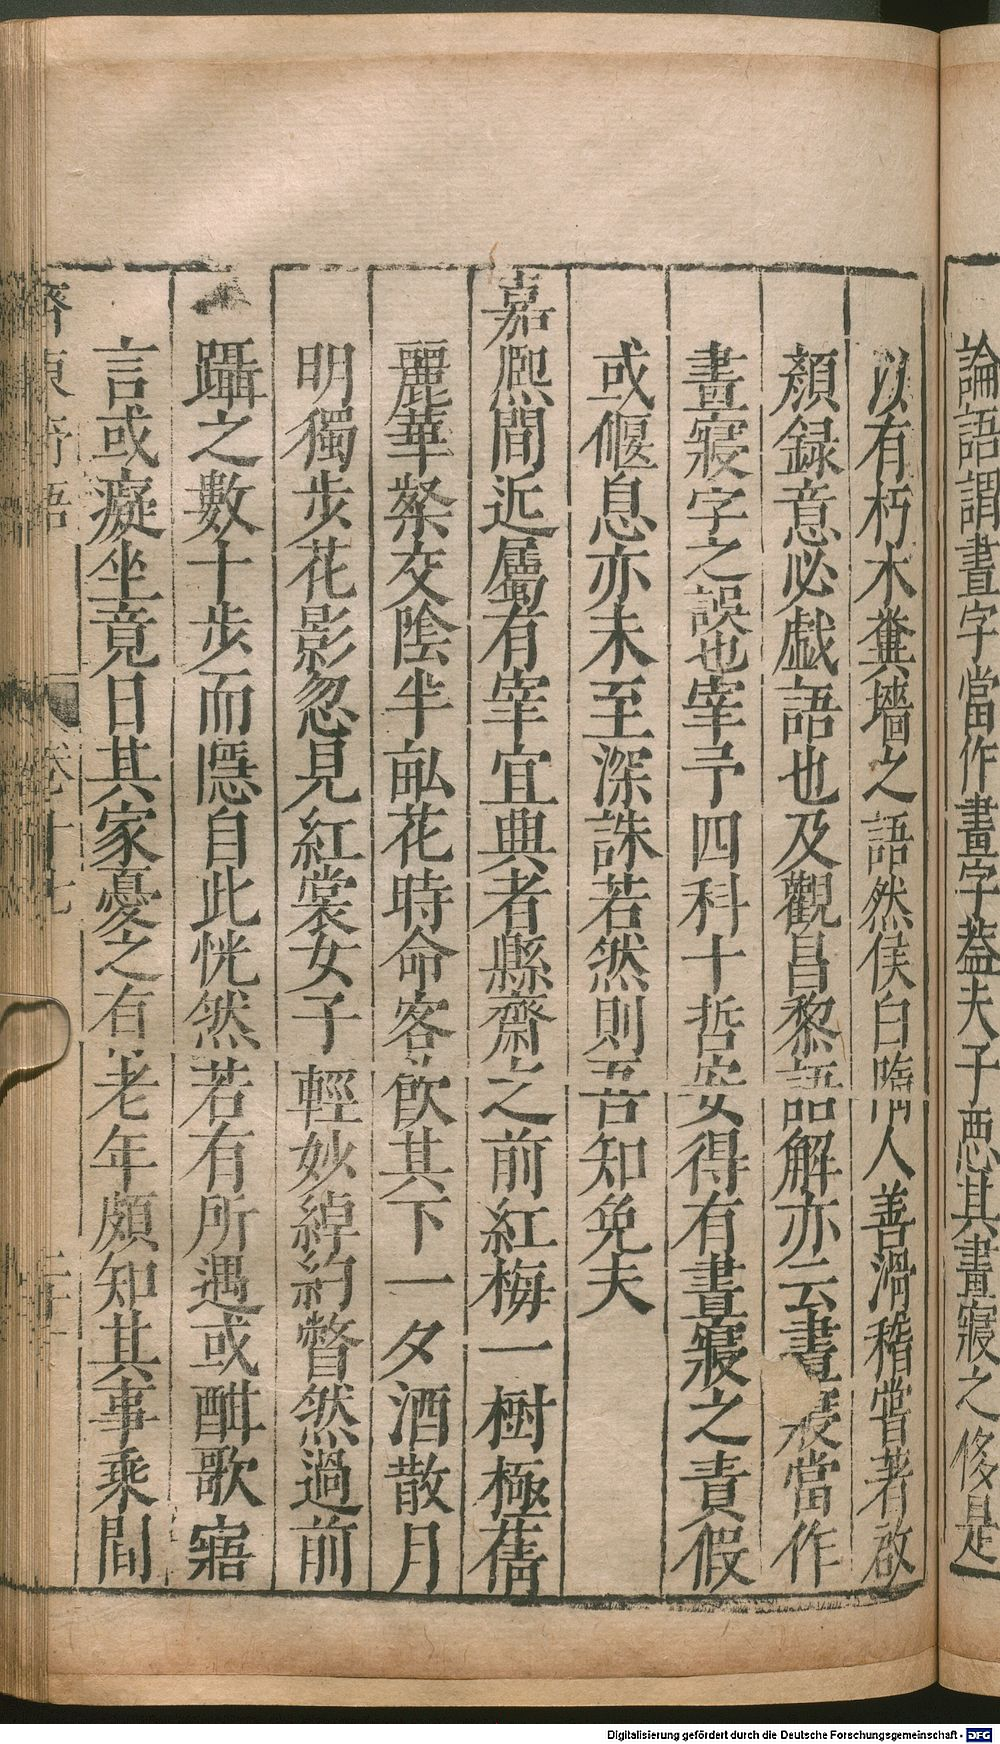 論語謂晝字當作畫字蓋夫子惡其畫寢之侈是
以有朽木糞墻之語然侯白隋人善滑稽嘗著啟
顏録意必戯語也及觀昌黎語解亦云晝寢當作
畫寢字之誤也宰予四科十哲安得有晝寢之責假
或偃息亦未至深誅若然則吾知免夫
嘉熈間近屬有宰宜典者縣齋之前紅梅一樹極蒨
麗華粲交陰半畝花時命客飲其下一夕酒散月
明獨步花影忽見紅裳女子輕妙綽約瞥然過前
躡之數十步而隱自此恍然若有所遇或酣歌寤
言或癡坐竟日其家憂之有老年頗知其事乘間
齊東野語
卷十七
Digitalisierung gefördert durch die Deutsche Forschungsgemeinschaft - DFG